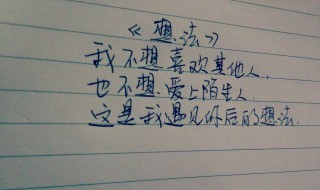 《想法》
我不想喜欢其他人,
也不想.爱上陌生人
这是我遇见你后的想法.